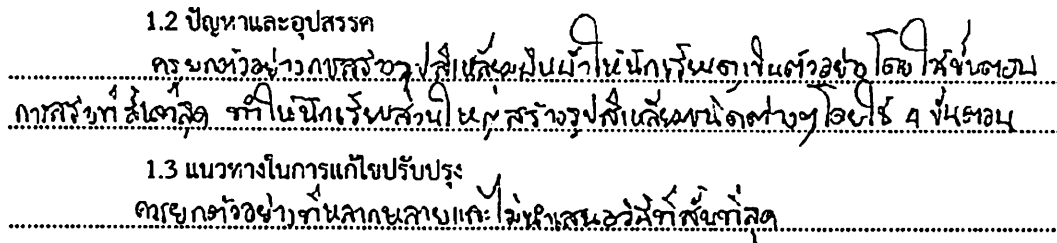 1.2 ปัญหาและอุปสรรค
ครูยกตัวอย่างการสร้างรูปสี่เหลี่ยมผืนผ้าให้นักเรียนดูเป็นตัวอย่างโดยใช้ขั้นตอน
การสร้างที่สั้นที่สุด ทำให้นักเรียนส่วนใหญ่สร้างรูปสี่เหลี่ยมชนิดต่างๆโดยใช้ 4 ขั้นตอน
1.3 แนวทางในการแก้ไขปรับปรุง
ควรยกตัวอย่างที่หลากหลายและไม่นำเสนอวิธีที่สั้นที่สุด